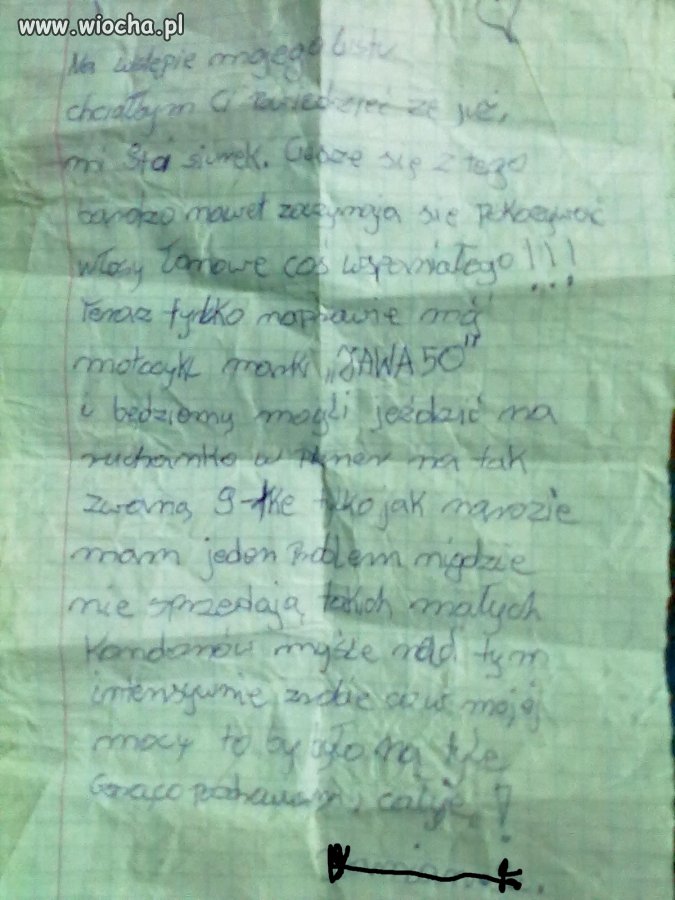 www.wiocha.pl
Na wstępie mojego listu
chciałbym Ci powiedzieć że już,
mi staj siurek. Cieszę się z tego
bardzo nawet zaczynają się pokazywać
włosy łonowe coś wspaniałego!!!
Teraz tylko naprawię mój
motocykl marki „JAWA 50"
i będziemy mogli jeździć na
ruchanko w na tak
zwaną 9-tkę tylko jak narazie
mam jeden problem nigdzie
nie sprzedają takich małych
kondonów myślę nad tym
intensywnie zrobie co w mojej
mocy to by było na tyle
Gorąco pozdrawiam, całuję !